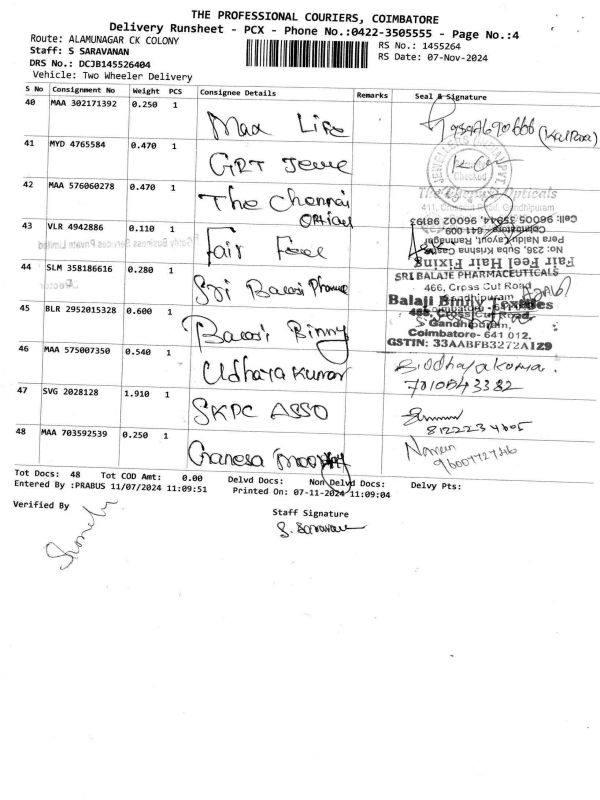 THE PROFESSIONAL COURIERS, COIMBATORE
Delivery Runsheet - PCX - Phone No.:0422-3505555 - Page No.:4
Route: ALAMUNAGAR CK COLONY
RS No.: 1455264
Staff: S SARAVANAN
RS Date: 07-Nov-2024
DRS No.: DCJB145526404
Vehicle: Two Wheeler Delivery
S No Consignment No Weight PCS Consignee Details Remarks Seal & Signature
40 MAA 302171392 0.250 1 Max Life
41 MYD 4765584 0.470 1 GRT Jewe
42 MAA 576060278 0.470 1 The Chennai Opticals
The Chennai Opticals
43 VLR 4942886 0.110 1 Fair Feel
Cell: 96005 35944, 96002 96193
Coimbatore - 641 009.
Pera Naidu Layout, Ramnagar
No: 236, Suba Krishna Castle
Fair Feel Hair Fixing
44 SLM 358186616 0.280 1 Sri Balaji Pharma
SRI BALAJE PHARMACEUTICALS
466, Cross Cut Road
Gandhipuram
45 BLR 2952015328 0.600 1 Balaji Binny
Balaji Binny Textiles
Cross Cut Road,
Gandhipuram,
Coimbatore- 641 012.
GSTIN: 33AABFB3272A1Z9
46 MAA 575007350 0.540 1 Udhaya Kumar
47 SVG 2028128 1.910 1 SKPC ASSO
48 MAA 703592539 0.250 1 Ganesa Moorthy
Tot Docs: 48 Tot COD Amt: 0.00 Delvd Docs: Non Delvd Docs: Delvy Pts:
Entered By :PRABUS 11/07/2024 11:09:51 Printed On: 07-11-2024 11:09:04
Verified By
Staff Signature
S. Saravanan